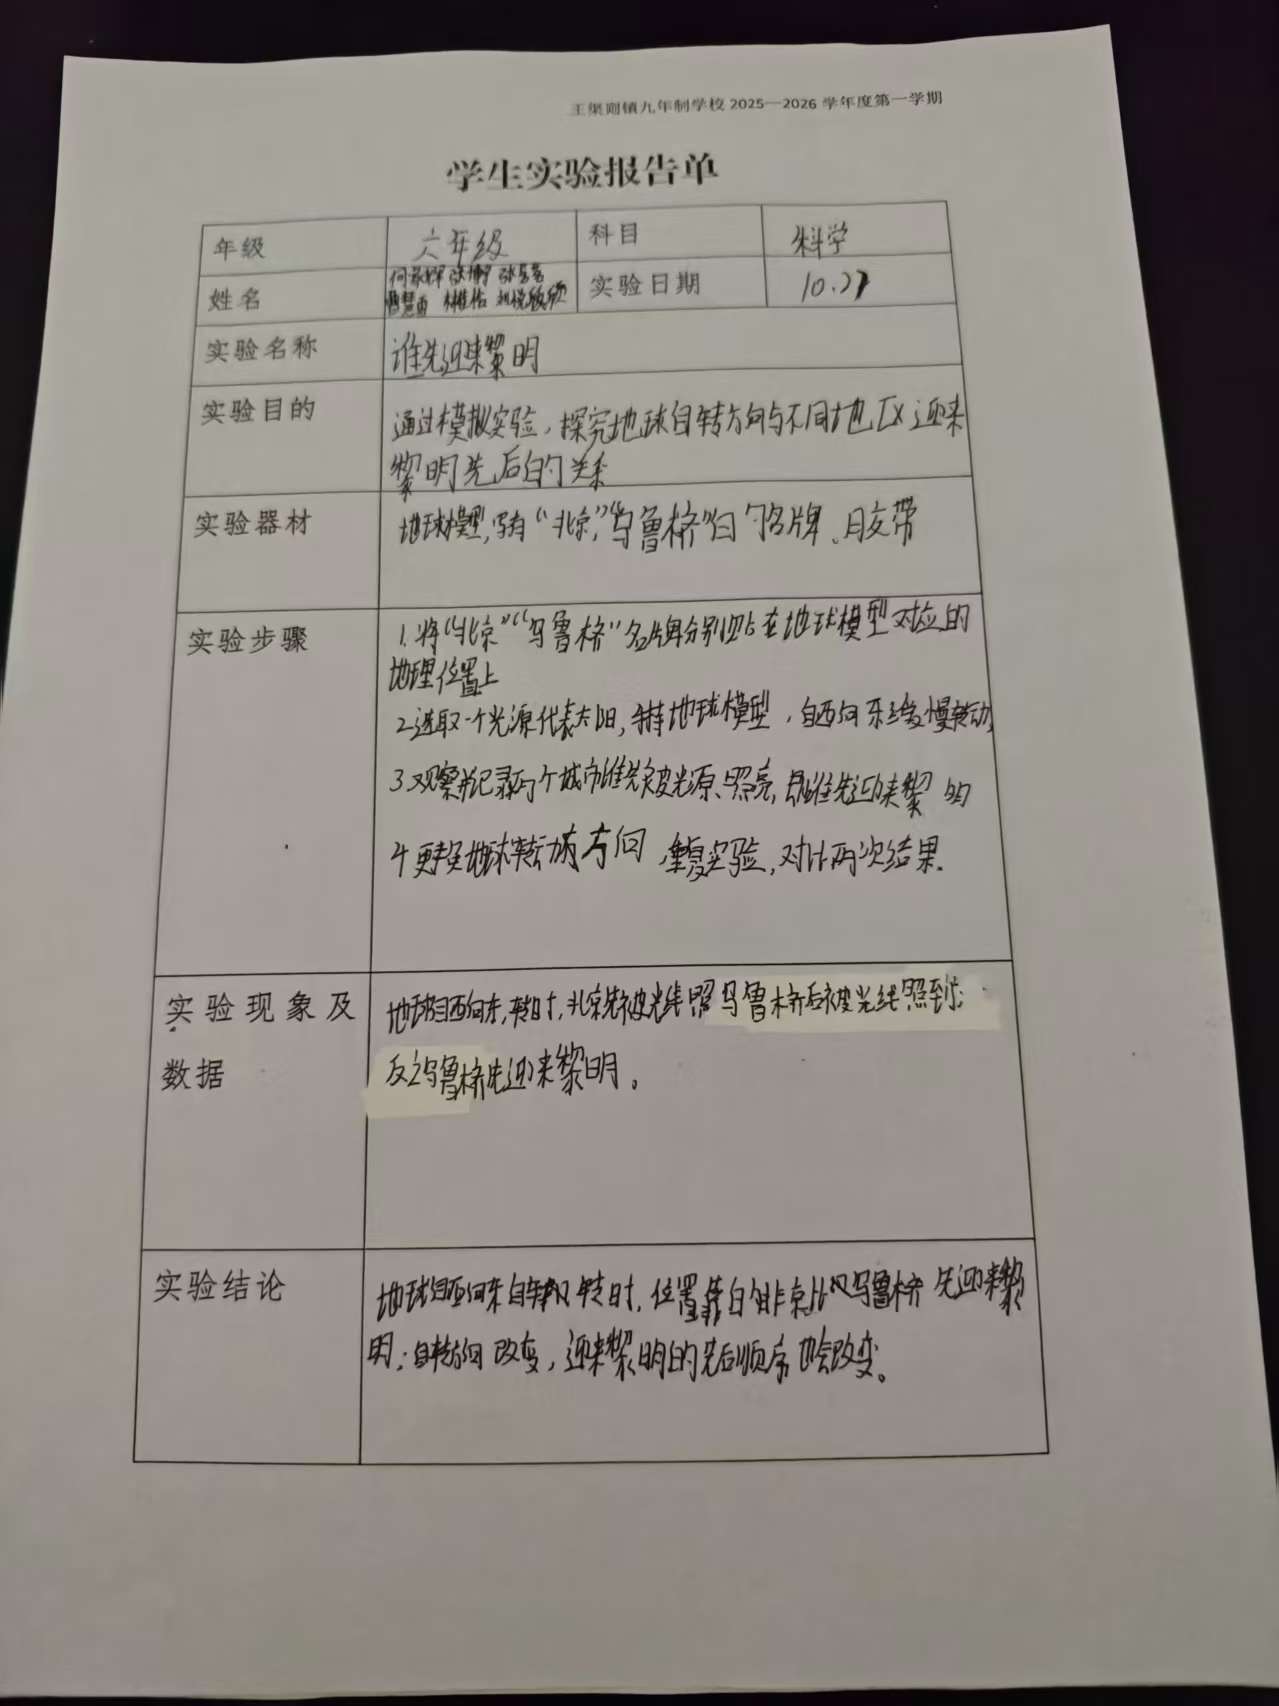 王渠则镇九年制学校 2025—2026 学年度第一学期
学生实验报告单
年级 六年级 科目 科学
姓名 实验日期 10.27
实验名称 谁先迎来黎明
实验目的 通过模拟实验，探究地球自转方向与不同地区迎来
黎明先后的关系
实验器材 地球模型，写有“北京”，“乌鲁木齐”的名牌、胶带
实验步骤 1.将“北京”“乌鲁木齐”名牌分别贴在地球模型对应的
地理位置上
2.选取一个光源代表太阳，手持地球模型，自西向东缓慢转动，
3.观察并记录两个城市谁先被光源照亮，即谁先迎来黎明
4.更换地球转动方向，重复实验，对比两次结果.
实验现象及 地球自西向东，转时，北京先被光线照 乌鲁木齐后被光线照到；
数据 反之乌鲁木齐先迎来黎明。
实验结论 地球自西向东自转时，位置靠的北京比乌鲁木齐先迎来黎
明；自转方向改变，迎来黎明的先后顺序也会改变。